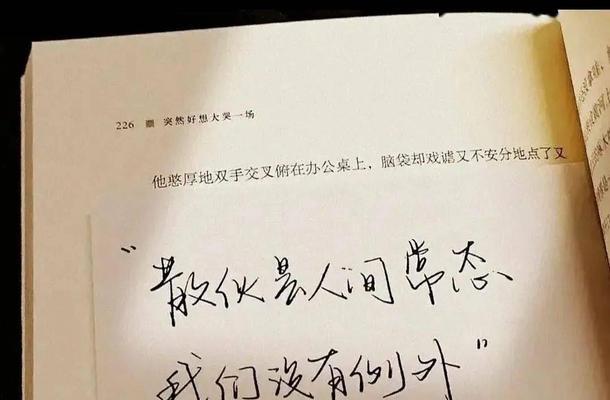 226 突然好想大哭一场
他憨厚地双手交叉俯在办公桌上，脑袋却戏谑又不安分地点了又
“散伙是人间常态
我们没有例外”